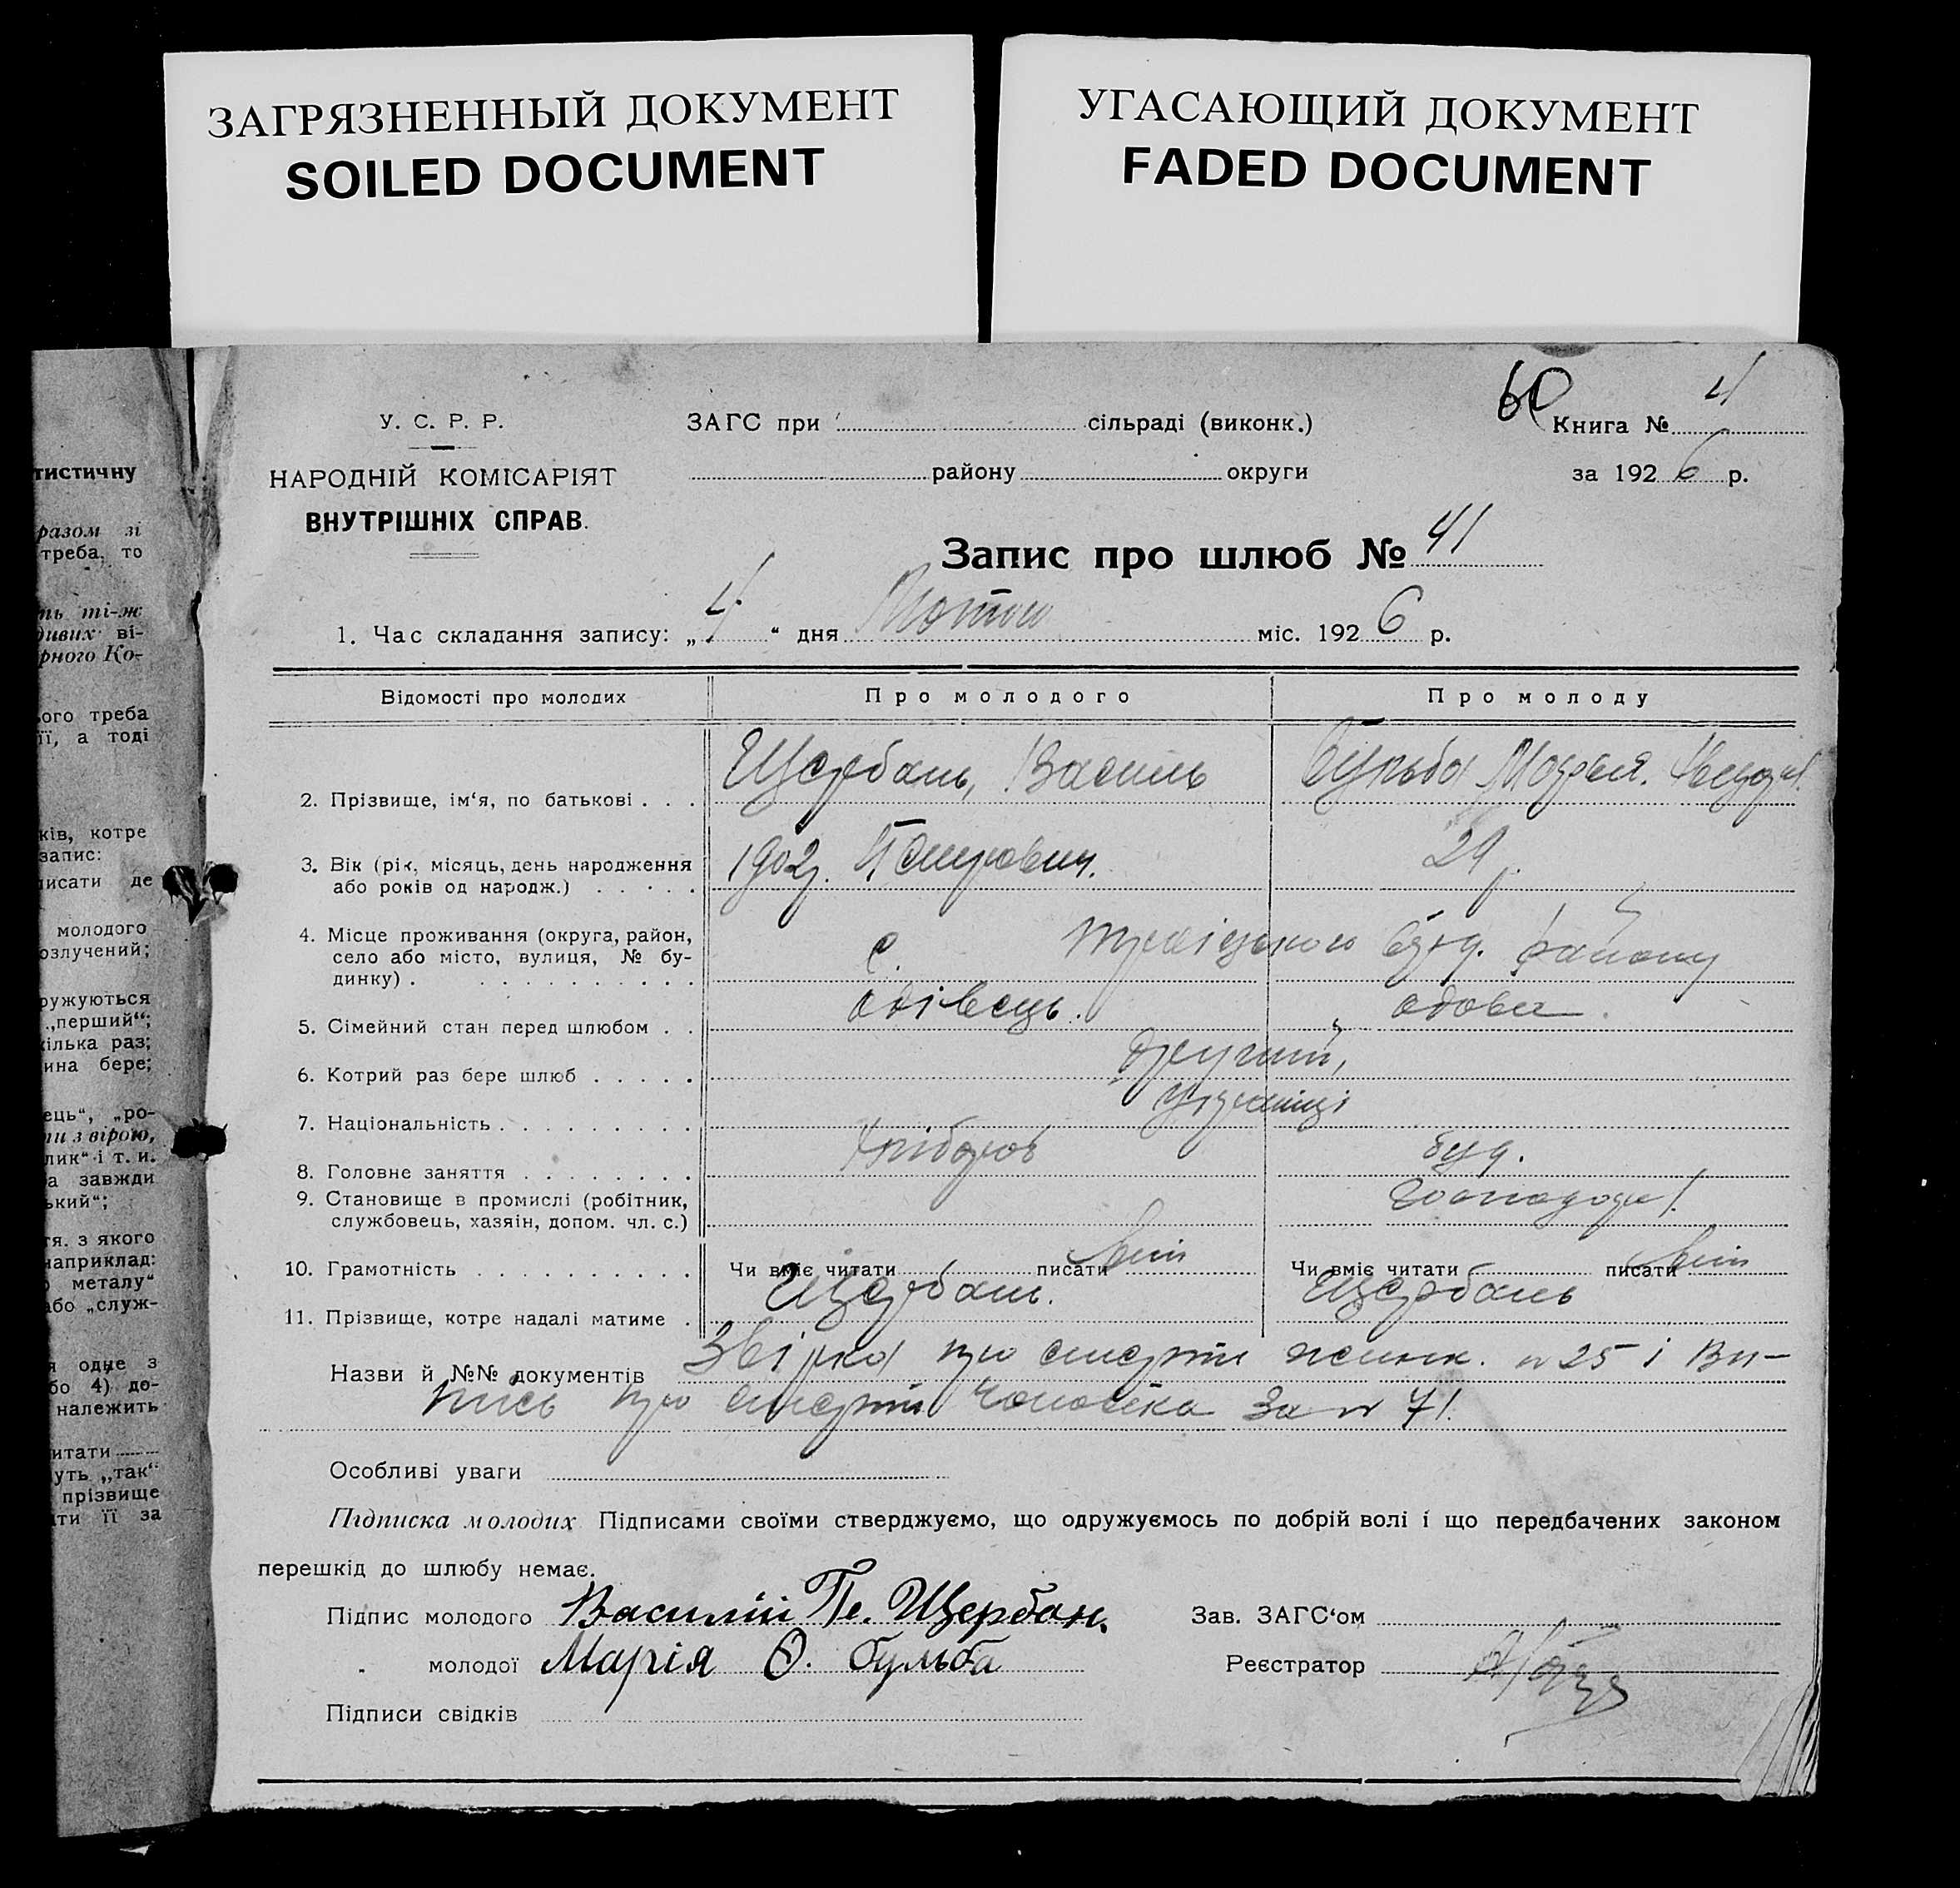 ЗАГРЯЗНЕННЫЙ ДОКУМЕНТ
SOILED DOCUMENT
УГАСАЮЩИЙ ДОКУМЕНТ
FADED DOCUMENT
тистичну
разом зі
треба, то
ть ті-ж
дивих ві-
рного Ко-
ого треба
її, а тоді
ків, котре
запис:
писати де
молодого
озлучений;
ружуються
„перший“;
кілька раз;
ина бере;
ець“, „ро-
ти з вірою,
лик“ і т. и.
а завжди
ький“;
тя. з якого
наприклад:
о металу“
або „служ-
я одне з
бо 4) до-
належить
итати
уть „так“
прізвище
ти її за
60
У. С. Р. Р.
НАРОДНІЙ КОМІСАРІЯТ
ВНУТРІШНІХ СПРАВ.
ЗАГС при сільраді (виконк.)
району округи
Книга № 4
за 1926 р.
Запис про шлюб № 41
1. Час складання запису: „4“ дня міс. 1926 р.
Відомості про молодих Про молодого Про молоду
2. Прізвище, ім‘я, по батькові . . . Щербань, Василь Бульба Марія.
3. Вік (рік, місяць, день народження або років од народж.) . . . . . 1902р. Петрович. 29 р.
4. Місце проживання (округа, район, село або місто, вулиця, № будинку) . . . . . . . . . . с. району
5. Сімейний стан перед шлюбом . . вдівець. вдова.
6. Котрий раз бере шлюб . . . . . другий,
7. Національність . . . . . . . . . українці
8. Головне заняття . . . . . . . . Хлібороб
9. Становище в промислі (робітник, службовець, хазяін, допом. чл. с.)
10. Грамотність . . . . . . . . . . Чи вміє читати писати вміє Чи вміє читати писати вміє
11. Прізвище, котре надалі матиме . Щербань. Щербань
Назви й №№ документів про смерть жінки. № 25 і Ви-
пись про смерть чоловіка за № 71.
Особливі уваги
Підписка молодих Підписами своїми стверджуємо, що одружуємось по добрій волі і що передбачених законом
перешкід до шлюбу немає.
Підпис молодого Василій Пе. Щербан. Зав. ЗАГС‘ом
„ молодої Марія Ѳ. Бульба Реєстратор
Підписи свідків